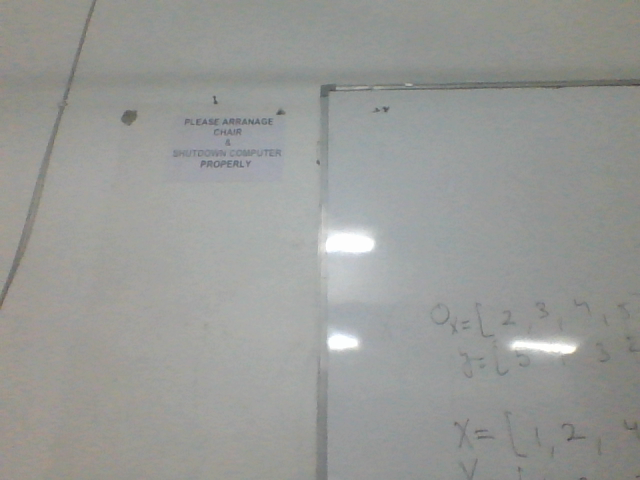 PLEASE ARRANAGE
CHAIR
&
SHUTDOWN COMPUTER
PROPERLY
x=[2,3,4,5
y=[5
3 2
X=[1,2,4